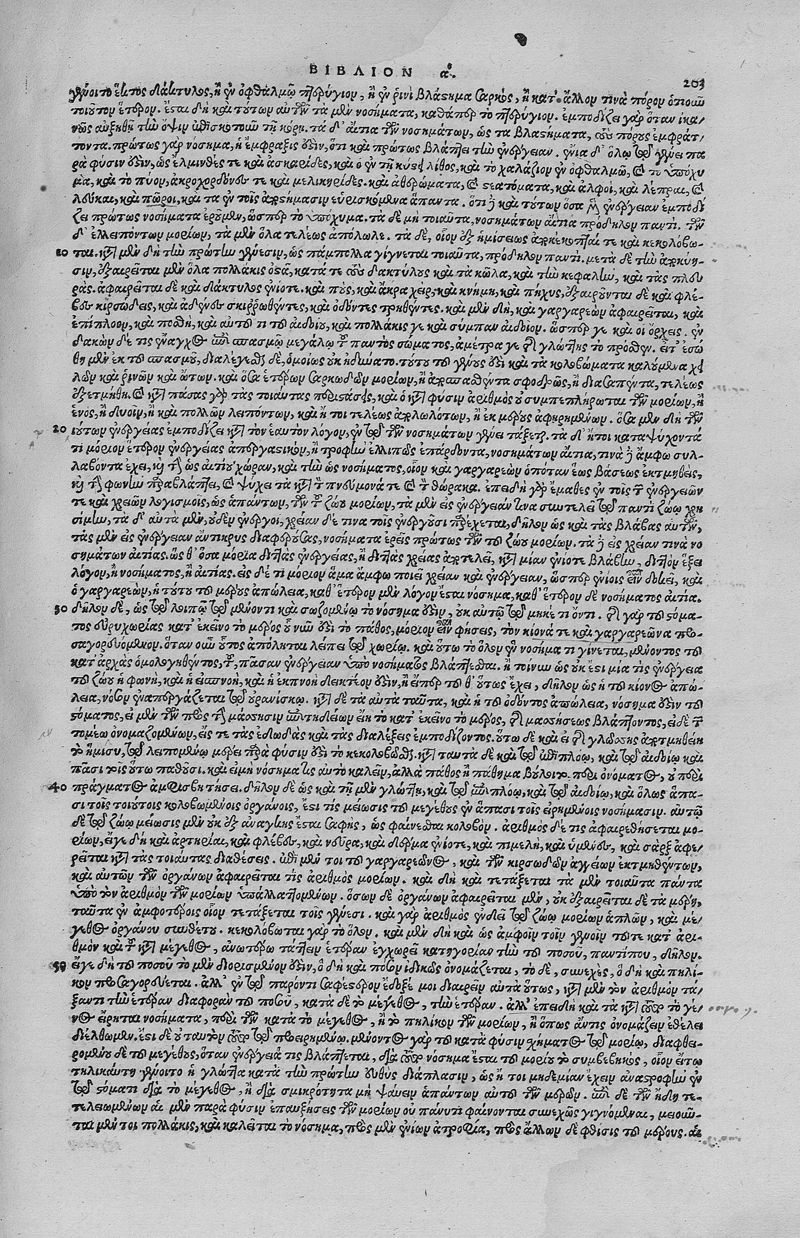 ΒΙΒΛΙΟΝ α΄.
203
γένοιτο ἕκτος δάκτυλος, ἢ ἐν ὀφθαλμῷ πτερύγιον, ἢ ἐν ῥινὶ βλάστημα σαρκὸς, ἢ κατ' ἄλλον τινὰ πόρον ὁτιοῦν
τοιοῦτον ἕτερον. ἔσται δὴ καὶ τούτων αὐτῶν τὰ μὲν νοσήματα, καθάπερ τὸ πτερύγιον. ἐμποδίζει γὰρ ὅταν ἱκα-
νῶς αὐξηθῇ τὴν ὄψιν ἐπισκοτοῦν τῇ κόρῃ. τὰ δ' αἴτια τῶν νοσημάτων, ὡς τὰ βλαστήματα, τοὺς πόρους ἐμφράτ-
τοντα. πρώτως γὰρ νόσημα, ἡ ἔμφραξίς ἐστιν, ὅτι καὶ πρώτως βλάπτει τὴν ἐνέργειαν. ἔνια δ' ὅλῳ τῷ γένει πα
ρὰ φύσιν ἐστὶν, ὡς ἕλμινθές τε καὶ ἀσκαρίδες, καὶ ὁ ἐν τῇ κύστει λίθος, καὶ τὸ χαλάζιον ἐν ὀφθαλμῷ, καὶ τὸ ὑπόχυ
μα, καὶ τὸ πύον, ἀκροχορδόνες τε καὶ μελικηρίδες. καὶ ἀθερώματα, καὶ στεατώματα, καὶ ἀλφοὶ, καὶ λέπραι, καὶ
λεῦκαι, καὶ πῶροι, καὶ τὰ ἐν τοῖς ἀποστήμασιν εὑρισκόμενα ἅπαντα. ὅτι δὲ καὶ τούτων ὅσα μὲν ἐνέργειαν ἐμποδί
ζει πρώτως νοσήματα ἐροῦμεν, ὥσπερ τὸ ὑπόχυμα. τὰ δὲ μὴ τοιαῦτα, νοσημάτων αἴτια πρόδηλον παντί. τῶν
δ' ἐλλειπόντων μορίων, τὰ μὲν ὅλα τελέως ἀπόλωλε. τὰ δὲ, οἷον ἐξ ἡμίσεως ἀποκέκοπταί τε καὶ κεκολόβω-
10 ται. κατὰ μὲν δὴ τὴν πρώτην γένεσιν, ὡς πάμπολλα γίγνεται τοιαῦτα, πρόδηλον παντί. μετὰ δὲ τὴν ἀποκύη-
σιν, ἐξαιρεῖται μὲν ὅλα πολλάκις ὀστᾶ, κατά τε τοὺς δακτύλους καὶ τὰ κῶλα, καὶ τὴν κεφαλὴν, καὶ τὰς πλευ
ράς. ἀφαιρεῖται δὲ καὶ δάκτυλος ἐνίοτε. καὶ ποὺς, καὶ ἄκρα χεὶρ, καὶ κνήμη, καὶ πῆχυς, ἐξαιροῦνται δὲ καὶ φλέ-
βες κιρσώδεις, καὶ ἀδένες σκιρρωθέντες, καὶ ὀδόντες τρηθέντες. καὶ μὲν δὴ, καὶ γαργαρεὼν ἀφαιρεῖται, καὶ
ἐπίπλοον, καὶ πόσθη, καὶ αὐτό τι τοῦ αἰδοίου, καὶ πολλάκις γε καὶ σύμπαν αἰδοῖον. ὥσπερ γε καὶ οἱ ὄρχεις. ἐν
δακὼν δέ τις ἔναγχος ἐπὶ σπασμῷ μεγάλῳ τοῦ παντὸς σώματος, ἀπέτραγε τῆς γλώττης τὸ πρόσθεν. εἶτ' ἐσώ
θη μὲν ἐκ τοῦ σπασμοῦ, διαλέγεσθαι δὲ, ὁμοίως οὐκ ἠδύνατο. τούτου τοῦ γένους ἐστὶ καὶ τὰ κολοβώματα καλούμενα χει
λῶν καὶ ῥινῶν καὶ ὤτων. καὶ ὅσα ἑτέρων σαρκωδῶν μορίων, ἢ ἀποσπασθέντα σφοδρῶς, ἢ διασαπέντα, τελέως
ἐξετμήθη. καὶ κατὰ πάσας γὰρ τὰς τοιαύτας περιστάσεις, καὶ ὁ κατὰ φύσιν ἀριθμὸς οὐ συμπεπλήρωται τῶν μορίων, ἢ
ἑνὸς, ἢ δυοῖν, ἢ καὶ πολλῶν λειπόντων, καὶ ἤτοι τελέως ἀπολωλότων, ἢ ἐκ μέρους ἀφῃρημένων. ὅσα μὲν δὴ τῶν
20 τούτων ἐνεργείας ἐμποδίζει κατὰ τὸν ἑαυτοῦ λόγον, ἐν τῷ τῶν νοσημάτων γένει τάξεται. τὰ δ' ἤτοι καταψύχοντά
τι μόριον ἕτερον ἐνεργείας ἀπεργαστικὸν, ἢ τροφὴν ἐλλιπῶς ἐπάρδοντα, νοσημάτων αἴτια, τινὰ δὲ ἄμφω συλ-
λαβόντα ἔχει, καὶ τὴν ὡς αἰτίου χώραν, καὶ τὴν ὡς νοσήματος, οἷον καὶ γαργαρεὼν ὁπόταν ἕως βάσεως ἐκτμηθεὶς,
καὶ τὴν φωνὴν παραβλάπτῃ, καὶ ψύχει τὰ κατὰ τὸν πνεύμονά τε καὶ θώρακα. ἐπειδὴ γὰρ ἔμαθες ἐν τοῖς τῶν ἐνεργειῶν
τε καὶ χρειῶν λογισμοῖς, ὡς ἁπάντων, τῶν τοῦ ζώου μορίων, τὰ μὲν εἰς ἐνέργειάν τινα συντελεῖ τῷ παντὶ ζώῳ χρη
σίμην, τὰ δ' αὐτὰ μὲν, οὐδὲν ἐνεργεῖ, χρείαν δέ τινα τοῖς ἐνεργοῦσι παρέχεται, δῆλον ὡς καὶ τὰς βλάβας αὐτῶν,
τὰς μὲν εἰς ἐνέργειαν ἀντικρυς διαφερούσας, νοσήματα ἐρεῖς πρώτως τῶν τοῦ ζώου μορίων. τὰς δὲ εἰς χρείαν τινὰ νο
σημάτων αἰτίας. ὥς θ' ὅσα μόρια διττὰς ἐνεργείας, ἢ διττὰς χρείας ἀποτελεῖ, κατὰ μίαν ἐνίοτε βλάβην, διττὸν ἕξει
λόγον, ἢ νοσήματος, ἢ αἰτίας. εἰς δέ τι μόριον ἅμα ἄμφω ποιεῖ χρείαν καὶ ἐνέργειαν, ὥσπερ ἐνίοις εἶναι δοκεῖ, καὶ
ὁ γαργαρεὼν, ἡ τούτου τοῦ μέρους ἀπώλεια, καθ' ἕτερον μὲν λόγον ἔσται νόσημα, καθ' ἕτερον δὲ νοσήματος αἰτία.
30 δῆλον δὲ, ὡς τῷ λοιπῷ τῷ μένοντι καὶ σωζομένῳ τὸ νόσημά ἐστιν, οὐκ αὐτῷ τῷ μηκέτι ὄντι. τῆς γὰρ τοῦ στόμα-
τος εὐρυχωρίας κατ' ἐκεῖνο τὸ μέρος ἐν ᾧ νῦν ἐστὶ τὸ πάθος, μόριον εἶναι φήσεις, τὸν κίονά τε καὶ γαργαρεῶνα προ-
σαγορευόμενον. ὅταν οὖν οὗτος ἀπόληται λείπει τῷ χωρίῳ. καὶ οὕτω τὸ ὅλον ἐν νόσημά τι γίνεται, μένοντος τοῦ
κατ' ἀρχὰς ὁμολογηθέντος, τοῦ, πᾶσαν ἐνέργειαν ὑπὸ νοσήματος βλάπτεσθαι. ἢ τοίνυν ὡς οὐκ ἔστι μία τις ἐνέργεια
τοῦ ζώου ἡ φωνὴ, καὶ ἡ εἰσπνοὴ, καὶ ἡ ἐκπνοὴ δεικτέον ἐστὶν, ἢ εἴπερ τοῦθ' οὕτως ἔχει, δῆλον ὡς ἡ τοῦ κίονος ἀπώ-
λεια, νόσον ἐναπεργάζεται τῷ οὐρανίσκῳ. κατὰ δὲ τὰ αὐτὰ ταῦτα, καὶ ἡ τοῦ ὀδόντος ἀπώλεια, νόσημά ἐστιν τοῦ
στόματος, εἰ μὲν τῶν πρὸς τὴν μάσησιν ἐπιτηδείων εἴη τὸ κατ' ἐκεῖνο τὸ μέρος, τῆς μασήσεως βλάπτοντος, εἰ δὲ τῶν
τομέων ὀνομαζομένων, εἰς τε τὰς ἐδωδὰς καὶ τὰς διαλέξεις ἐμποδίζοντος. οὕτω δὲ καὶ εἰ τῆς γλώσσης ἀποτμηθείη
τὸ ἥμισυ, τῷ λειπομένῳ μέρει παρὰ φύσιν ἐστὶ τὸ κεκολοβῶσθαι. κατὰ ταὐτὰ δὲ καὶ τῷ ἐπιπλόῳ, καὶ τῷ αἰδοίῳ καὶ
πᾶσι τοῖς οὕτω παθοῦσι. καὶ εἰ μὴ νόσημά τις αὐτὸ καλεῖν, ἀλλὰ πάθος ἢ πάθημα βούλοιτο, περὶ ὀνόματος, οὐ περὶ
40 πράγματος ἀμφισβητήσει. δῆλον δὲ ὡς καὶ τῇ μὲν γλώττῃ, καὶ τῷ ἐπιπλόῳ, καὶ τῷ αἰδοίῳ, καὶ ὅλως ἅπα-
σι τοῖς τοιούτοις κολοβωμένοις ὀργάνοις, ἔστι τις μείωσις τοῦ μεγέθους ἐν ἅπασι τοῖς εἰρημένοις νοσήμασιν. αὐτῷ
δὲ τῷ ζώῳ μείωσις μὲν οὐκ ἐξ ἀνάγκης ἔσται σαφὴς, ὡς φαίνεσθαι κολοβόν. ἀριθμὸς δέ τις ἀφαιρεθήσεται μο-
ρίων, εἴγε δὴ καὶ ἀρτηρίαι, καὶ φλέβες, καὶ νεῦρα, καὶ δέρμα ἐνίοτε, καὶ πιμελὴ, καὶ ὑμένες, καὶ σὰρξ ἀφαι-
ρεῖται κατὰ τὰς τοιαύτας διαθέσεις. ἐπὶ μέντοι τοῦ γαργαρεῶνος, καὶ τῶν κιρσωδῶν ἀγγείων ἐκτμηθέντων,
καὶ αὐτῶν τῶν ὀργάνων ἀφαιρεῖταί τις ἀριθμὸς μορίων. καὶ δὴ καὶ τετάξεται τὰ μὲν τοιαῦτα πάντα
ὑπὸ τὸν ἀριθμὸν τῶν μορίων ὑπαλλαττομένων. ὅσων δὲ ὀργάνων ἀφαιρεῖται μὲν, οὐκ ἐξαιρεῖται δὲ τὰ μέρη,
ταῦτα ἐν ἀμφοτέροις οἷον τετάξεται τοῖς γένεσι. καὶ γὰρ ἀριθμὸς ἐνδεῖ τῷ ζώῳ μορίων ἁπλῶν, καὶ μέ-
γεθος ὀργάνου συνθέτου. κεκολόβωται γὰρ τὸ ὅλον. καὶ μὲν δὴ καὶ ὡς ἀμφοῖν τοῖν γενοῖν τοῦ τε κατ' ἀρι-
θμὸν καὶ τοῦ κατὰ μέγεθος, ἀνωτέρω τάττειν ἑτέραν ἐγχωρεῖ κατηγορίαν τὴν τοῦ ποσοῦ, παντί που, δῆλον.
50 εἴγε δὴ τοῦ ποσοῦ τὸ μὲν διορισμένον ἐστὶν, ὃ δὴ καὶ ποσὸν ἰδικῶς ὀνομάζεται, τὸ δὲ, συνεχὲς, ὃ δὴ καὶ πηλί-
κον προσαγορεύεται. ἀλλ' ἐν τῷ παρόντι σαφέστερον ἔδοξέ μοι διαιρεῖν αὐτὰ οὕτως, κατὰ μὲν τὸν ἀριθμὸν τά-
ξαντι τὴν ἑτέραν διαφορὰν τοῦ ποσοῦ, κατὰ δὲ τὸ μέγεθος, τὴν ἑτέραν. ἀλλ' ἐπειδὴ καὶ τὰ κατὰ τοῦτο τὸ γέ-
νος εἴρηται νοσήματα, περὶ τῶν κατὰ τὸ μέγεθος, ἢ τὸ πηλίκον τῶν μορίων, ἢ ὅπως ἄν τις ὀνομάζειν ἐθέλει
διέλθωμεν. ἔστι δὲ οὐ ταὐτὸν τοῦτο τῷ προειρημένῳ. μένοντος γὰρ τοῦ κατὰ φύσιν σχήματος τῷ μορίῳ, διαφθει-
ρομένου δὲ τοῦ μεγέθους, ὅταν ἐνέργειά τις βλάπτηται, διὰ τοῦτο νόσημα ἔσται τοῦ μορίου τὸ συμβεβηκὸς, οἷον εἴτῳ
τηλικαύτη γένοιτο ἡ γλῶττα κατὰ τὴν πρώτην εὐθὺς διάπλασιν, ὡς ἤτοι μηδεμίαν ἔχειν ἀναστροφὴν ἐν
τῷ στόματι διὰ τὸ μέγεθος, ἢ διὰ σμικρότητα μὴ ψαύειν ἁπάντων αὐτοῦ τῶν μερῶν. ἐπὶ δὲ τῶν ἤδη τε-
τελειωμένων αἱ μὲν παρὰ φύσιν ἐπαυξήσεις τῶν μορίων οὐ παντὶ φαίνονται συνεχῶς γιγνόμεναι, μειοῦν-
ται μέντοι πολλάκις, καὶ καλεῖται τὸ νόσημα, πρὸς μὲν ἐνίων ἀτροφία, πρὸς ἄλλων δὲ φθίσις τοῦ μέρους. αἱ